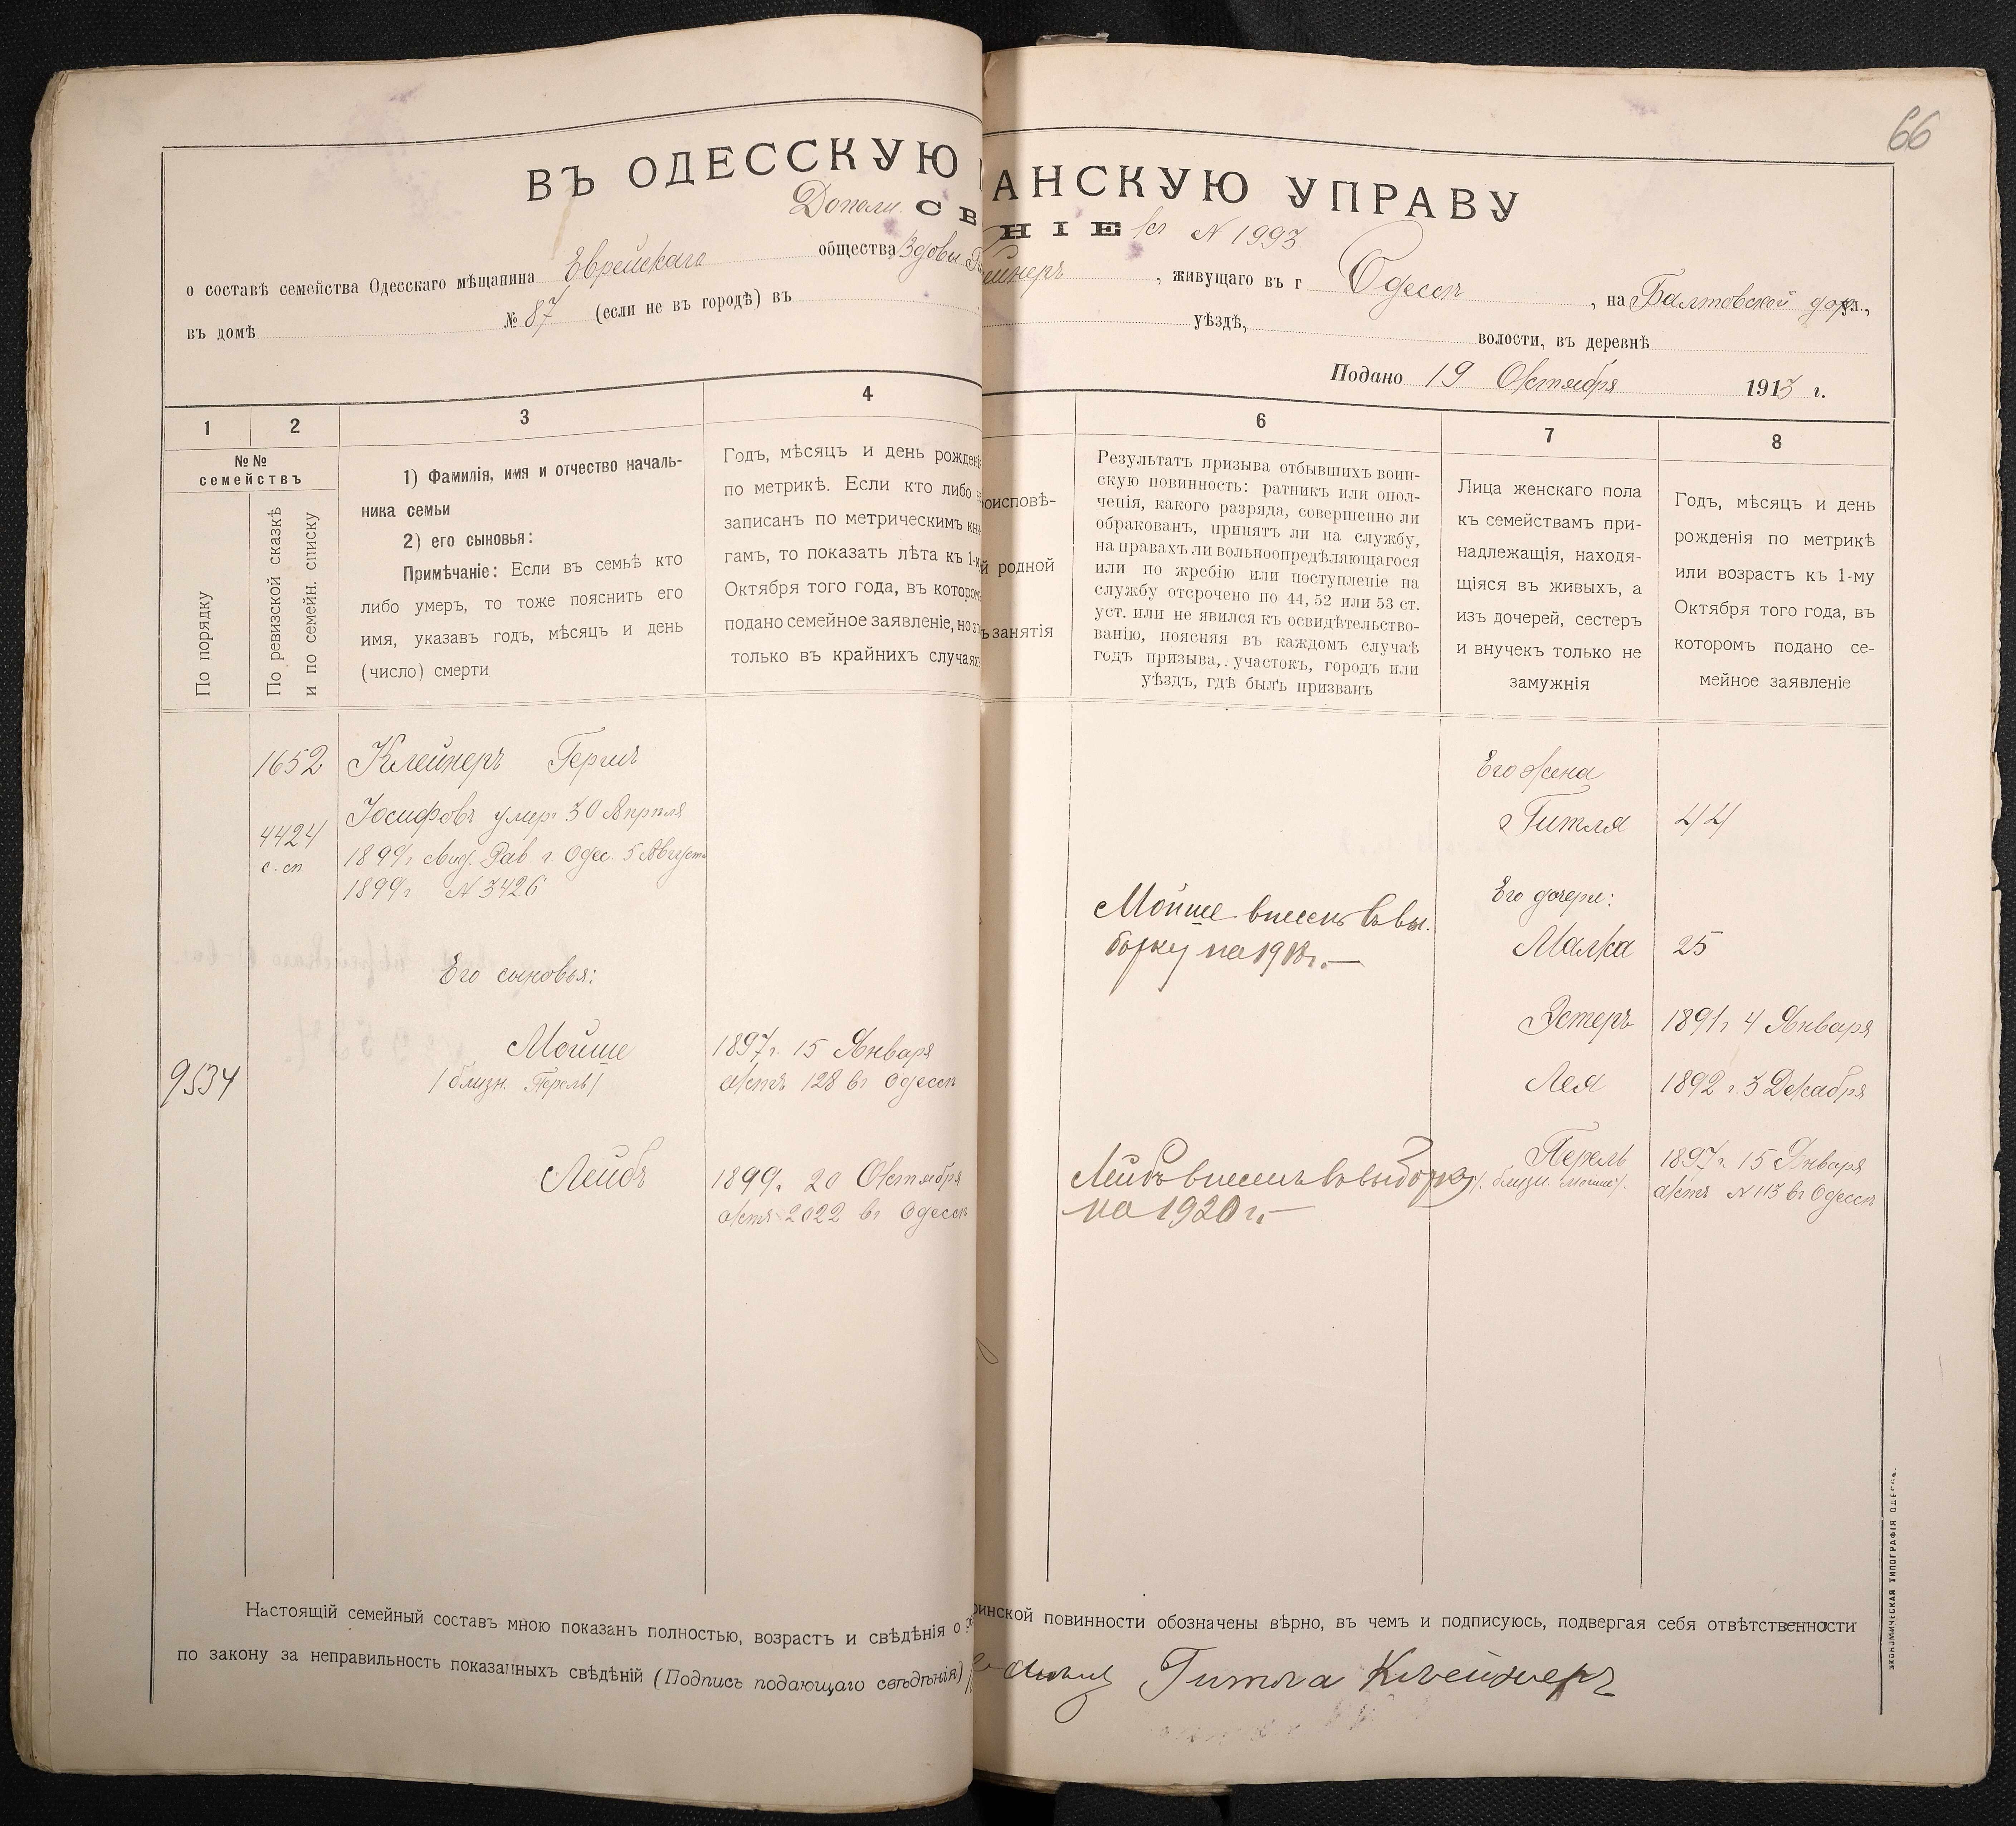 66
ВЪ ОДЕССКУЮ
АНСКУЮ УПРАВУ
Дополн. СВ
НІЕ къ № 1993
о составѣ семейства Одесскаго мѣщанина Еврейскаго общества Вдовы
ейнеръ, живущаго въ г Одессѣ, на Балтовской дор ул.,
въ домѣ № 87 (если не въ городѣ) въ
уѣздѣ, волости, въ деревнѣ
Подано 19 Октября 1913 г.
1
2
3
4
6
7
8
№№
семействъ
По порядку
По ревизской сказкѣ
и по семейн. списку
1) Фамилія, имя и отчество началь-
ника семьи
2) его сыновья:
Примѣчаніе: Если въ семьѣ кто
либо умеръ, то тоже пояснить его
имя, указавъ годъ, мѣсяцъ и день
(число) смерти
Годъ, мѣсяцъ и день рожденія
по метрикѣ. Если кто либо не
записанъ по метрическимъ кни-
гамъ, то показать лѣта къ 1-му
Октября того года, въ которомъ
подано семейное заявленіе, но это
только въ крайнихъ случаяхъ
оисповѣ-
й родной
ъ занятія
Результатъ призыва отбывшихъ воин-
скую повинность: ратникъ или опол-
ченія, какого разряда, совершенно ли
обракованъ, принятъ ли на службу,
на правахъ ли вольноопредѣляющагося
или по жребію или поступленіе на
службу отсрочено по 44, 52 или 53 ст.
уст. или не явился къ освидѣтельство-
ванію, поясняя въ каждомъ случаѣ
годъ призыва, участокъ, городъ или
уѣздъ, гдѣ былъ призванъ
Лица женскаго пола
къ семействамъ при-
надлежащія, находя-
щіяся въ живыхъ, а
изъ дочерей, сестеръ
и внучекъ только не
замужнія
Годъ, мѣсяцъ и день
рожденія по метрикѣ
или возрастъ къ 1-му
Октября того года, въ
которомъ подано се-
мейное заявленіе
1652 Клейнеръ Гершъ
4424 Іосифовъ умеръ 30 Апрѣля
с. сп 1899 г свид. Рав г. Одес. 5 Августа
1899 г № 3426
Его сыновья:
9534
Мойше 1897 г. 15 Января
/близн. Перель/ актъ 128 въ Одессѣ
Лейбъ 1899 г. 20 Октября
актъ 2022 въ Одессѣ
Мойше внесенъ въ вы-
борку на 1918 г.—
Лейбъ внесенъ въ выборку
на 1920 г.—
Его жена
Гитля 44
Его дочери:
Малка 25
Эстеръ 1891 г 4 Января
Лея 1892 г. 3 Декабря
Перель 1897 г. 15 Января
/близн. Мойше/. актъ № 113 въ Одессѣ
Настоящій семейный составъ мною показанъ полностью, возрастъ и свѣдѣнія о
оинской повинности обозначены вѣрно, въ чемъ и подписуюсь, подвергая себя отвѣтственности
по закону за неправильность показанныхъ свѣдѣній (Подпись подающаго свѣдѣнія)
Гитля Клейнеръ
ЭКОНОМИЧЕСКАЯ ТИПОГРАФІЯ ОДЕССА.